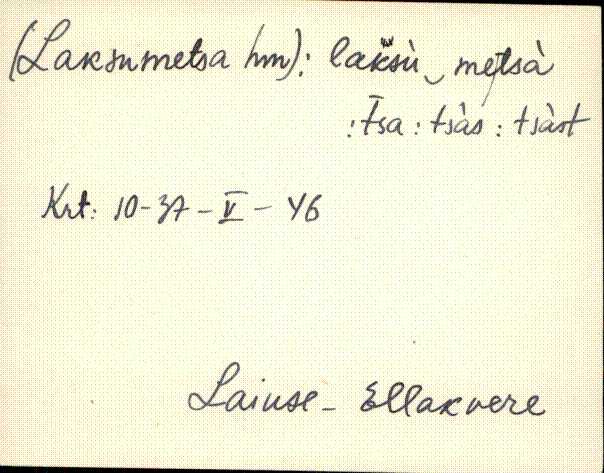 (Laksumetsa hm): lak̆sù‿metsà
: t̄sa : tsàs : tsàst
Krt: 10-37-V-46
Laiuse - Ellakvere